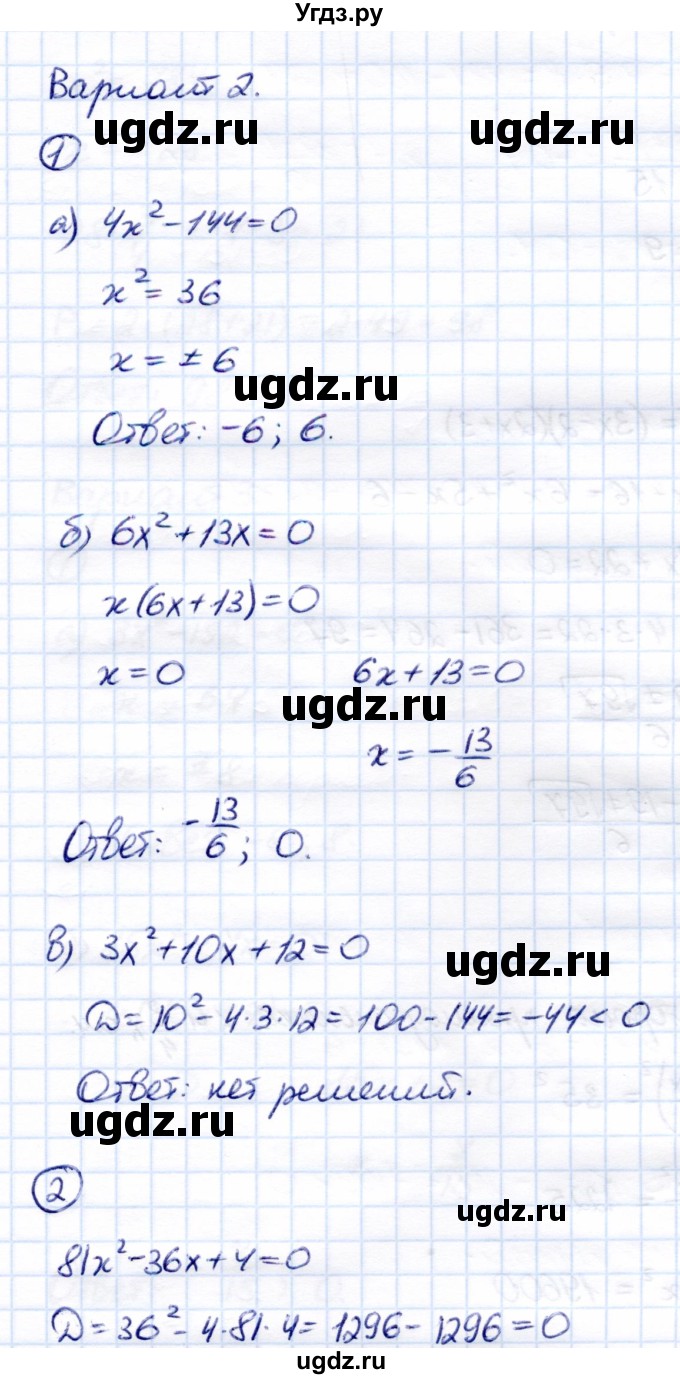 Угдз.ру
Вариант 2.
ugdz.ru ugdz.ru
1
а) 4x² - 144 = 0
x² = 36
x = ± 6
ugdz.ru
Ответ: -6; 6.
б) 6x² + 13x = 0
x(6x + 13) = 0
x = 0 6x + 13 = 0
ugdz.ru
x = - 13/6
Ответ: - 13/6; 0.
в) 3x² + 10x + 12 = 0
ugdz.ru
D = 10² - 4·3·12 = 100 - 144 = -44 < 0
Ответ: нет решений.
ugdz.ru
2
ugdz.ru
81x² - 36x + 4 = 0
D = 36² - 4·81·4 = 1296 - 1296 = 0
ugdz.ru